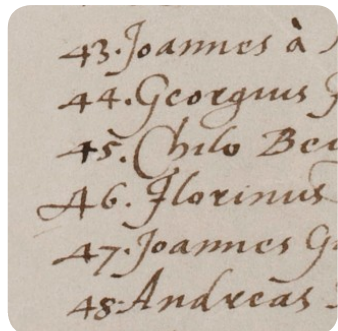 43. Joannes à
44. Georgius
45. Chilo Bei
46. Florinus
47. Joannes G
48. Andreas